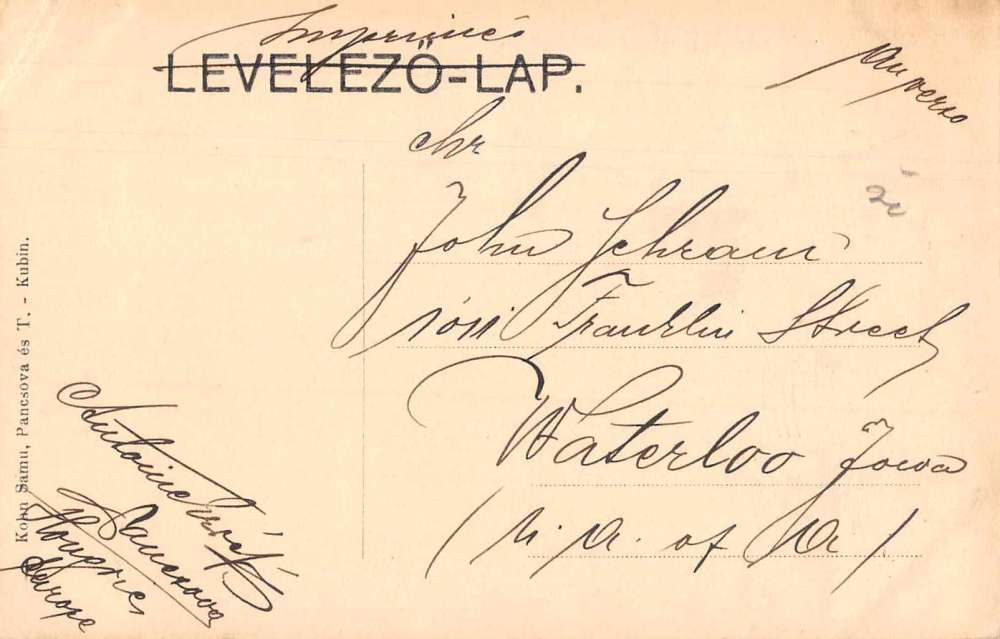 Imprimés
LEVELEZŐ-LAP.
au verso
Mr
John Schram
Franklin Street
Waterloo Iowa
( of )
Kohn Samu, Pancsova és T. - Kubin.
Antoine
Pancsova
Hongrie
Europe